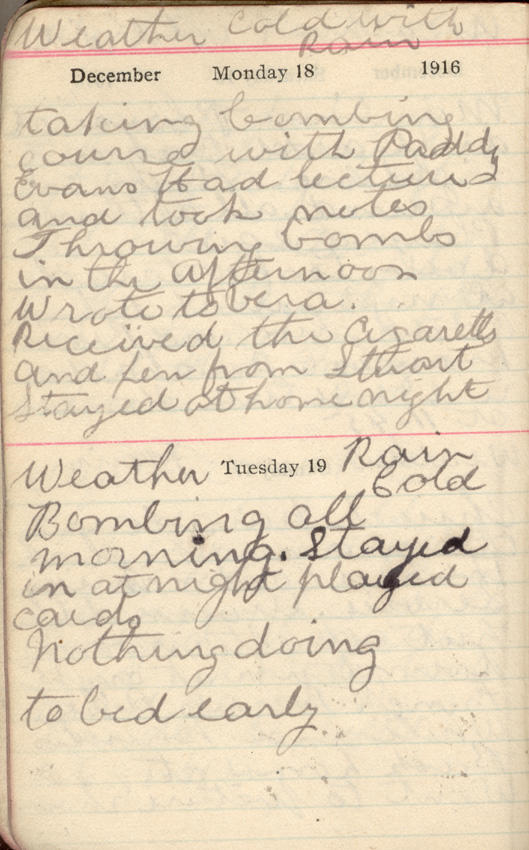 Weather Cold with
Rain
December Monday 18 1916
taking bombing
course with Paddy
Evans Had lectures
and took notes
Throwing bombs
in the afternoon
Wrote to Vera.
Received the Cigaretts
and pen from Stuart
Stayed at home night
Weather Tuesday 19 Rain
Cold
Bombing all
morning. Stayed
in at night played
cards
Nothing doing
to bed early